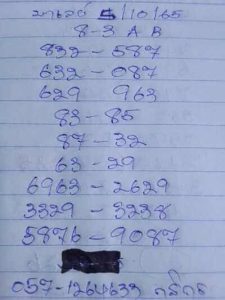 มาเลย์ 5/10/65
8-3 A B
832 - 587
632 - 087
629 963
83 - 85
87 - 32
63 - 29
6963 - 2629
3329 - 3238
5876 - 9087
057-1264633